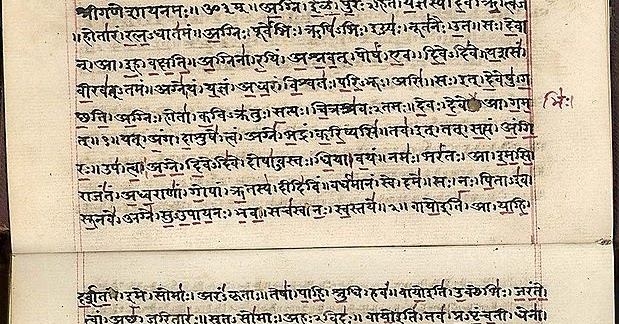 श्रीगणेशायनमः॥ॐ३म्॥अग्निं।ईळे।पुरःऽहितं।यज्ञस्य।देवं।ऋत्विजं
।होतारं।रत्नऽधातमं॥अग्निः।पूर्वेभिः।ऋषिऽभिः।ईड्यः।नूतनैः।उत।सः।देवा
न्।आ।इह।वक्षति॥अग्निना।रयिं।अश्नवत्।पोषं।एव।दिवेऽदिवे।यशसं
वीरवत्ऽतमं॥अग्ने।यं।यज्ञं।अध्वरं।विश्वतः।परिऽभूः।असि।सः।इत्।देवेषु।ग
च्छति॥अग्निः।होता।कविऽक्रतुः।सत्यः।चित्रश्रवःऽतमः।देवः।देवे।आ।गम भिः।
त्॥१॥यत्।अंग।दाशुषे।त्वं।अग्ने।भद्रं।करिष्यसि।तव।इत्।तत्।सत्यं।अंगि
रः॥उप।त्वा।अग्ने।दिवेऽदिवे।दोषाऽवस्तः।धिया।वयं।नमः।भरंतः।आ।इमसि
राजंतं।अध्वराणां।गोपां।ऋतस्य।दीदिविं।वर्धमानं।स्वे।दमे॥सः।नः।पिताऽइव
सूनवे।अग्ने।सुऽउपायनः।भव।सचस्व।नः।स्वस्तये॥२॥वायोइति।आ।याहि
दर्शत।इमे।सोमाः।अरंऽकृताः॥तेषां।पाहि।श्रुधि।हवं॥वायोइति।उक्थेभिः।जरंते
त्वां।अच्छ।जरितारः॥सुतऽसोमाः।अहःऽविदः॥वायोइति।तव।प्रऽपृंचती।धेना।